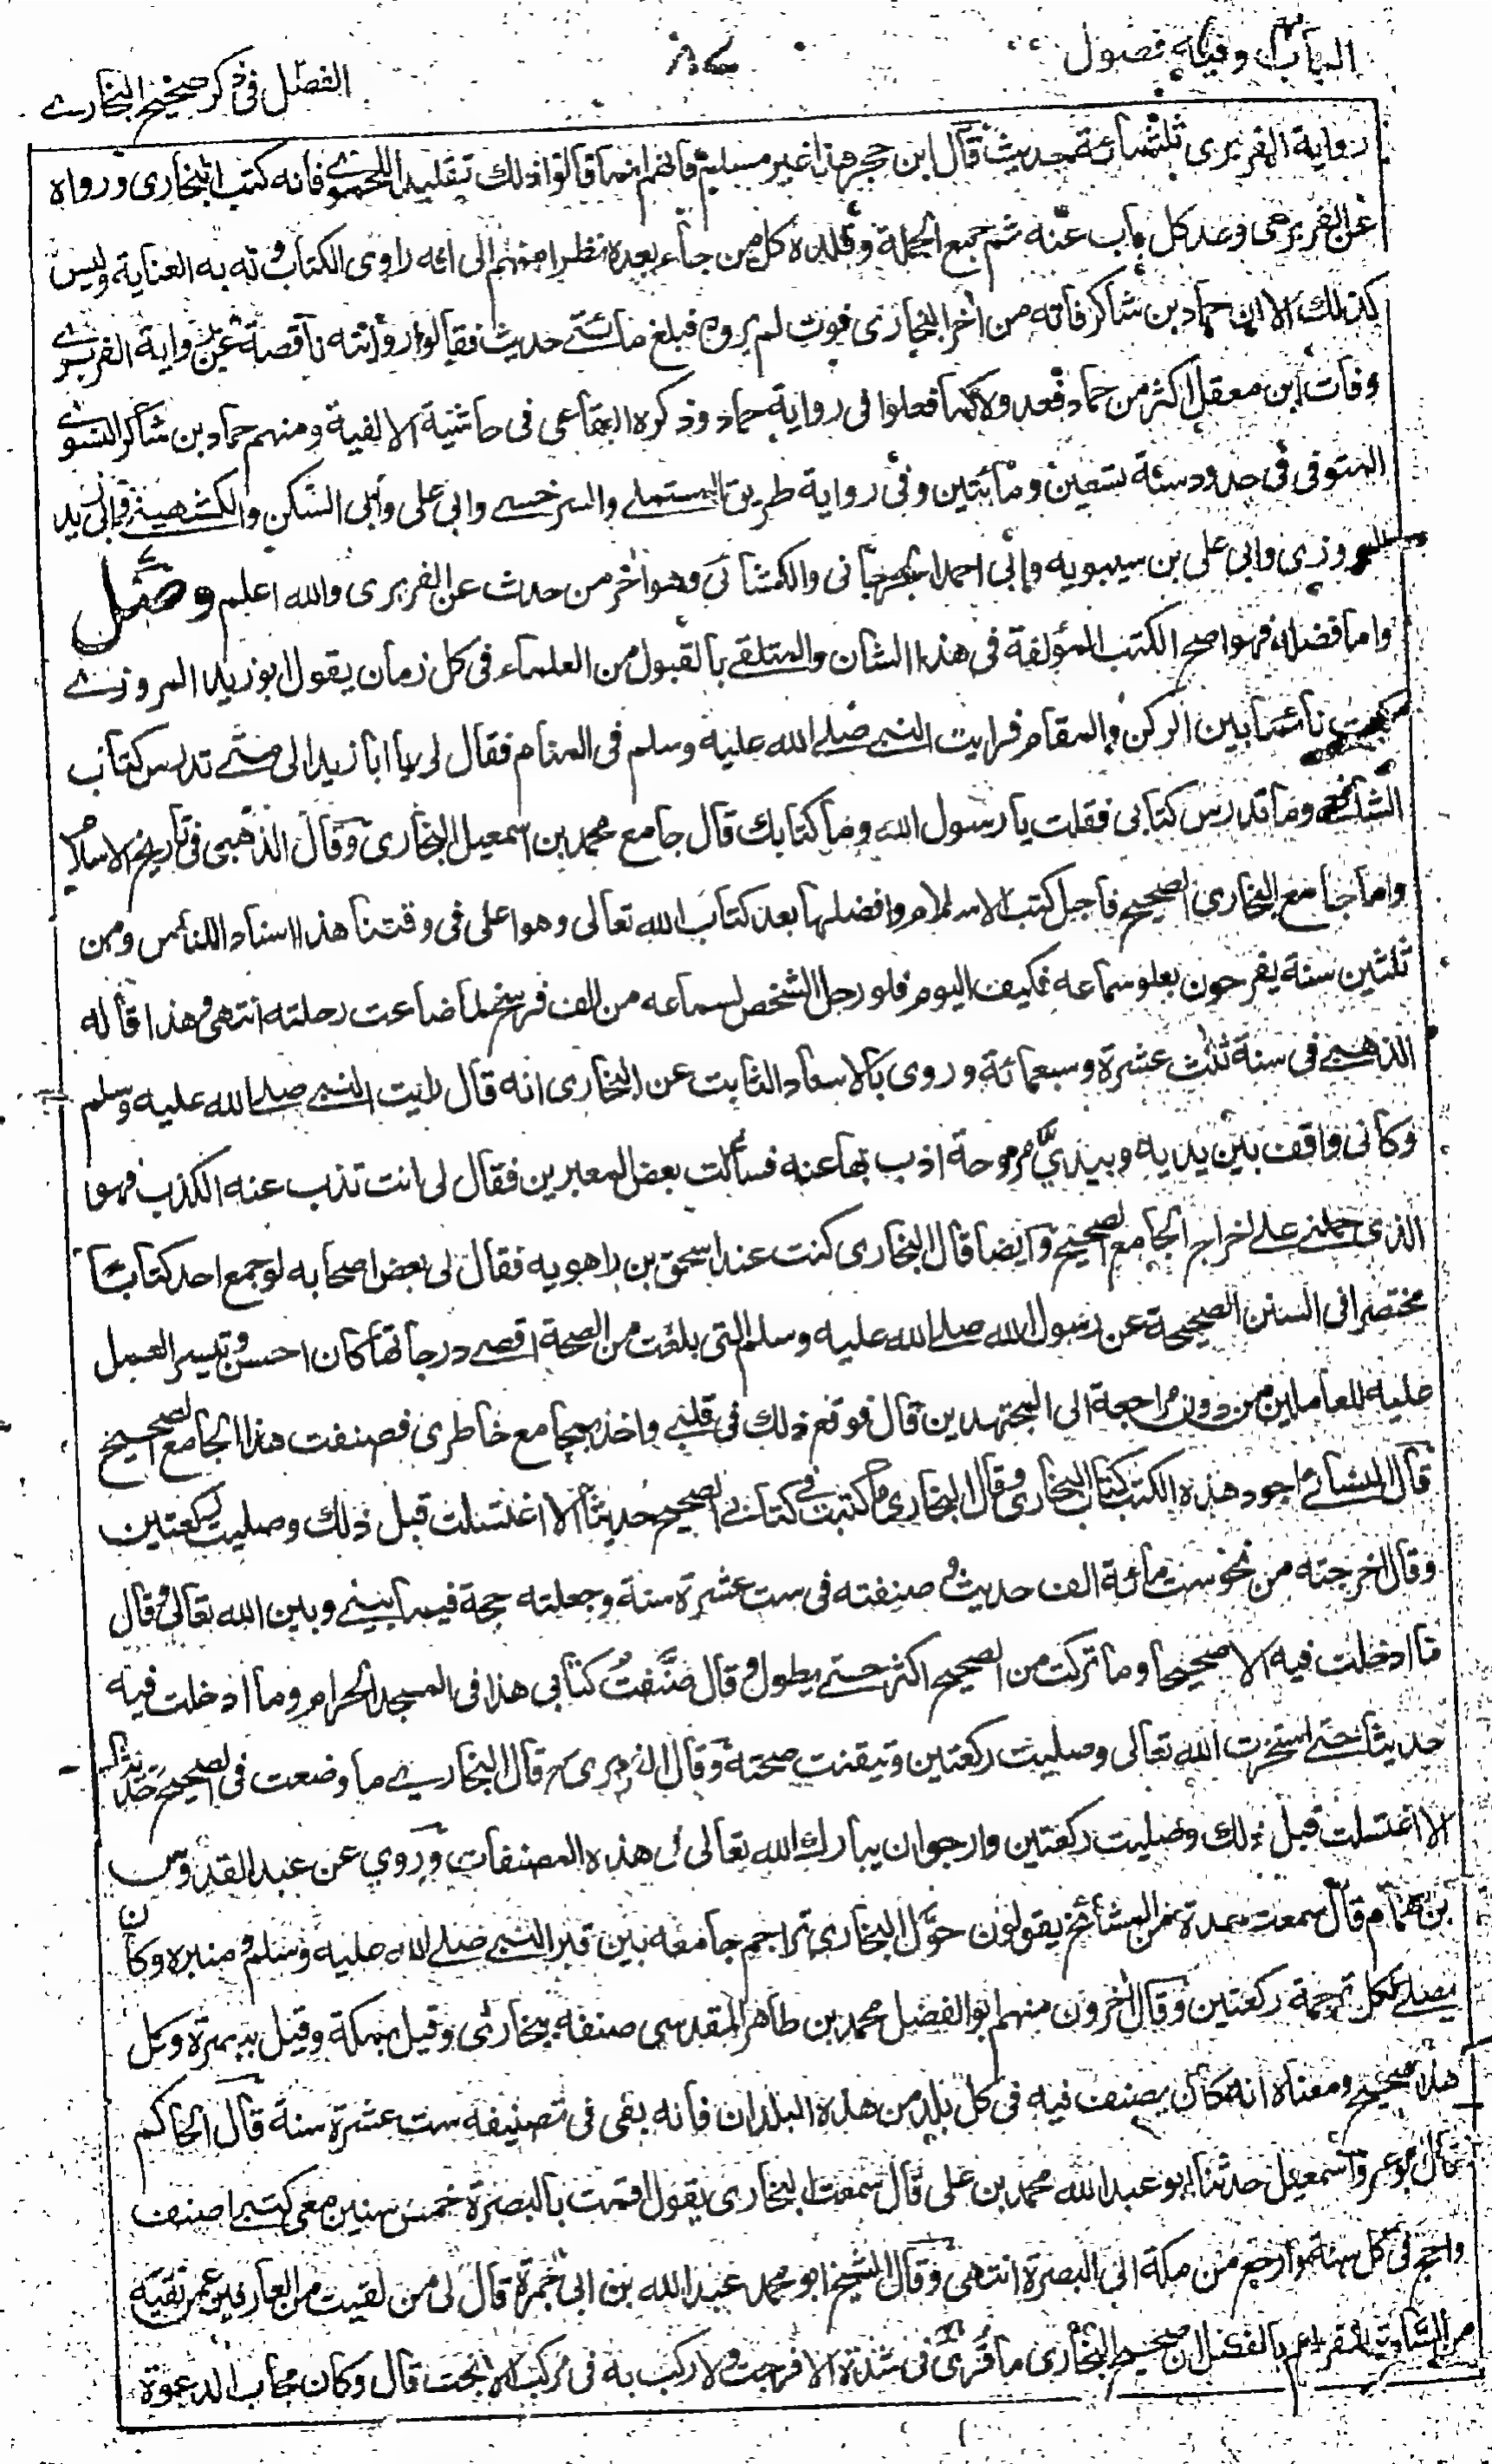 الباب وفيه فصول
٨٤
الفصل فى ذكر صحيح البخارے
رواية الفربرى ثلثمائة حديث قال ابن حجر هذا غير مسلم فانهم انما قالوا ذلك تقليدا للحموے فانه كتب البخارى ورواه
عن الفربرى وعد كل باب عنه ثم جمع الجملة وقلده كل من جاء بعده نظرا منهم الى انه راوى الكتاب وله به العناية وليس
كذلك الا ان حماد بن شاكر فاته من اخر البخارى فوت لم يروه فبلغ مائتے حديث فقالوا روايته ناقصة عن رواية الفربرے
وفات ابن معقل اكثر من حماد فعدوه كما فعلوا فى رواية حماد وذكره البقاعى فى حاشية الالفية ومنهم حماد بن شاكر النسوے
المتوفى فى حدود سنة تسعين ومائتين وفى رواية طريق المستملے والسرخسے وابى على وابى السكن والكشميهنے وابى زيد
المروزى وابى على بن سيبويه وابى احمد الجرجانى والكشانى وهو اخر من حدث عن الفربرى والله اعلم وصل
واما فضله فهو اصح الكتب المؤلفة فى هذا الشان والمتلقے بالقبول من العلماء فى كل زمان يقول ابو زيد المروزے
كنت نائما بين الركن والمقام فرايت النبے صلے الله عليه وسلم فى المنام فقال لى يا ابا زيد الى متے تدرس كتاب
الشافعے وما تدرس كتابى فقلت يا رسول الله وما كتابك قال جامع محمد بن اسمعيل البخارى وقال الذهبى فى تاريخ الاسلام
واما جامع البخارى الصحيح فاجل كتب الاسلام وافضلها بعد كتاب الله تعالى وهو اعلى فى وقتنا هذا اسناد اللناس ومن
ثلثين سنة يفرحون بعلو سماعه فكيف اليوم فلو رحل الشخص لسماعه من الف فرسخ لما ضاعت رحلته انتهى وهذا قاله
الذهبے فى سنة ثلث عشرة وسبعمائة وروى بالاسناد الثابت عن البخارى انه قال رايت النبے صلے الله عليه وسلم
وكانى واقف بين يديه وبيدىّ مروحة اذب بها عنه فسألت بعض المعبرين فقال لى انت تذب عنه الكذب فهو
الذى حملنے علے اخراج الجامع الصحيح وايضا قال البخارى كنت عند اسحق بن راهويه فقال لى بعض اصحابه لو جمع احد كتابا
مختصرا فى السنن الصحيحة عن رسول الله صلے الله عليه وسلم التى بلغت من الصحة اقصے درجاتها كان احسن وتيسر العمل
عليه للعاملين من دون مراجعة الى المجتهدين قال فوقع ذلك فى قلبے واخذ بمجامع خاطرى فصنفت هذا الجامع الصحيح
قال النسائے اجود هذه الكتب كتاب البخارى وقال البخارى ما كتبت فى كتابے الصحيح حديثا الا اغتسلت قبل ذلك وصليت ركعتين
وقال اخرجته من نحو ست مائة الف حديث وصنفته فى ست عشرة سنة وجعلته حجة فيما بينے وبين الله تعالى وقال
ما ادخلت فيه الا صحيحا وما تركت من الصحيح اكثر حتے يطول وقال صنفت كتابى هذا فى المسجد الحرام وما ادخلت فيه
حديثا حتے استخرت الله تعالى وصليت ركعتين وتيقنت صحته وقال الفربرى قال البخارے ما وضعت فى الصحيح حديثا
الا اغتسلت قبل ذلك وصليت ركعتين وارجو ان يبارك الله تعالى فى هذه المصنفات وروى عن عبد القدوس
بن همام قال سمعت عدة من المشائخ يقولون حوّل البخارى تراجم جامعه بين قبر النبے صلے الله عليه وسلم ومنبره وكان
يصلے لكل ترجمة ركعتين وقال اخرون منهم ابو الفضل محمد بن طاهر المقدسى صنفه ببخارى وقيل بمكة وقيل ببصرة وكل
هذا صحيح ومعناه انه كان يصنف فيه فى كل بلد من هذه البلدان فانه بقى فى تصنيفه ست عشرة سنة قال الحاكم
قال ابو عمرو اسمعيل حدثنا ابو عبد الله محمد بن على قال سمعت البخارى يقول اقمت بالبصرة خمس سنين معى كتبى اصنف
واحج فى كل سنة وارجع من مكة الى البصرة انتهى وقال الشيخ ابو محمد عبد الله بن ابى جمرة قال لى من لقيت من العارفين عمن لقيه
من السادة المقر لهم بالفضل ان صحيح البخارى ما قرئ فى شدة الا فرجت ولا ركب به فى مركب الا نجت قال وكان مجاب الدعوة